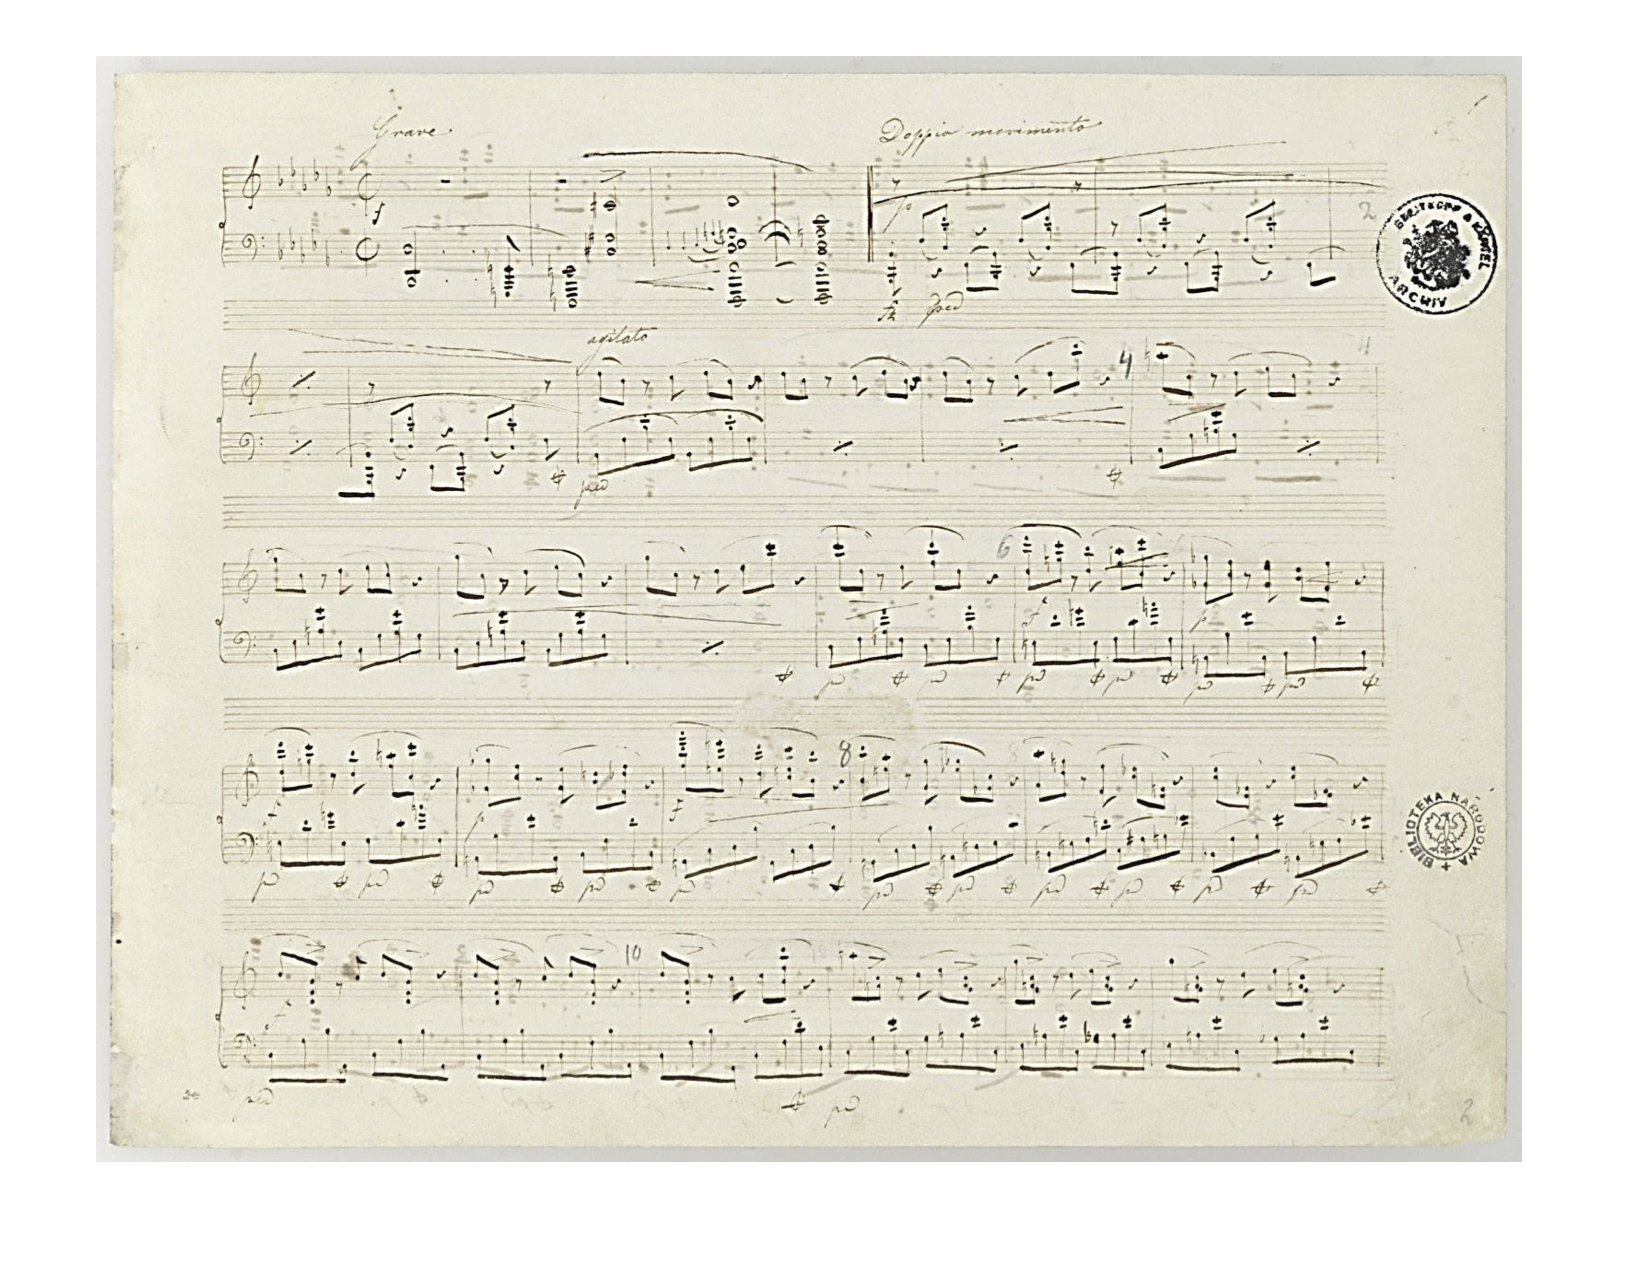 Grave
Doppio movimento
f
p
2
BREITKOPF & HÄRTEL
ARCHIV
ped
agitato
4
4
ped
6
f
p
p
p
p
p
p
p
8
f
p
f
p
p
p
p
p
p
p
p
p
p
BIBLIOTEKA NARODOWA
10
f
ped
p
2